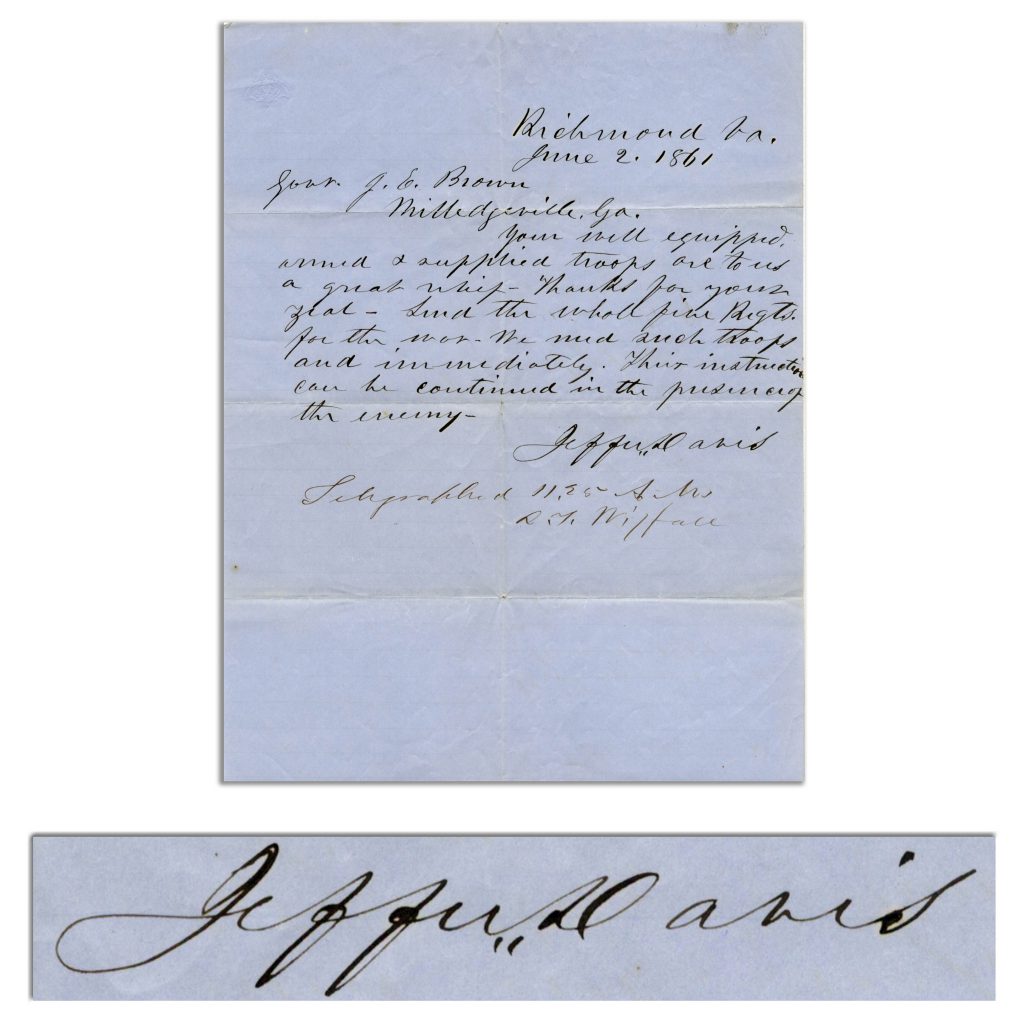 Richmond Va.
June 2. 1861
Govr. J. E. Brown
Milledgeville, Ga.
Your well equipped,
armed & supplied troops are to us
a great relief - Thanks for your
zeal - Send the whole five Regts.
for the war - We need such troops
and immediately. Their instruction
can be continued in the presence of
the enemy -
Jeffn,, Davis
Telegraphed 11,25 A.M.
L T. Wigfall
Jeffn,, Davis